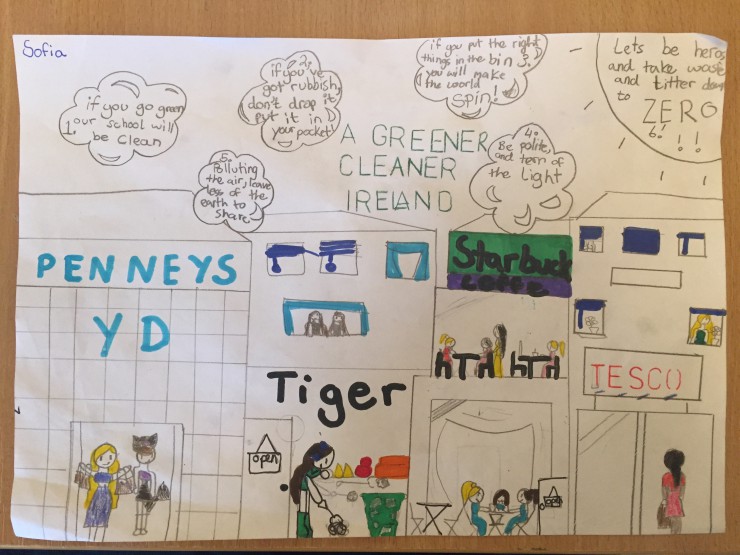 Sofia
1. if you go green
our school will
be Clean
2.
if you've
got rubbish,
don't drop it,
Put it in
your pocket!
if you put the right
things in the bin 3.
you will make
the world
Spin!
Lets be heros
and take waste
and titter down
to
ZERO
6. !!
A GREENER
CLEANER
IRELAND
4.
Be polite,
and tern of
the Light
5.
Polluting
the air, leave
less of the
earth to
Share
PENNEYS
YD
T T
T
T
Starbuck
coffe
Tiger
TESCO
open
open